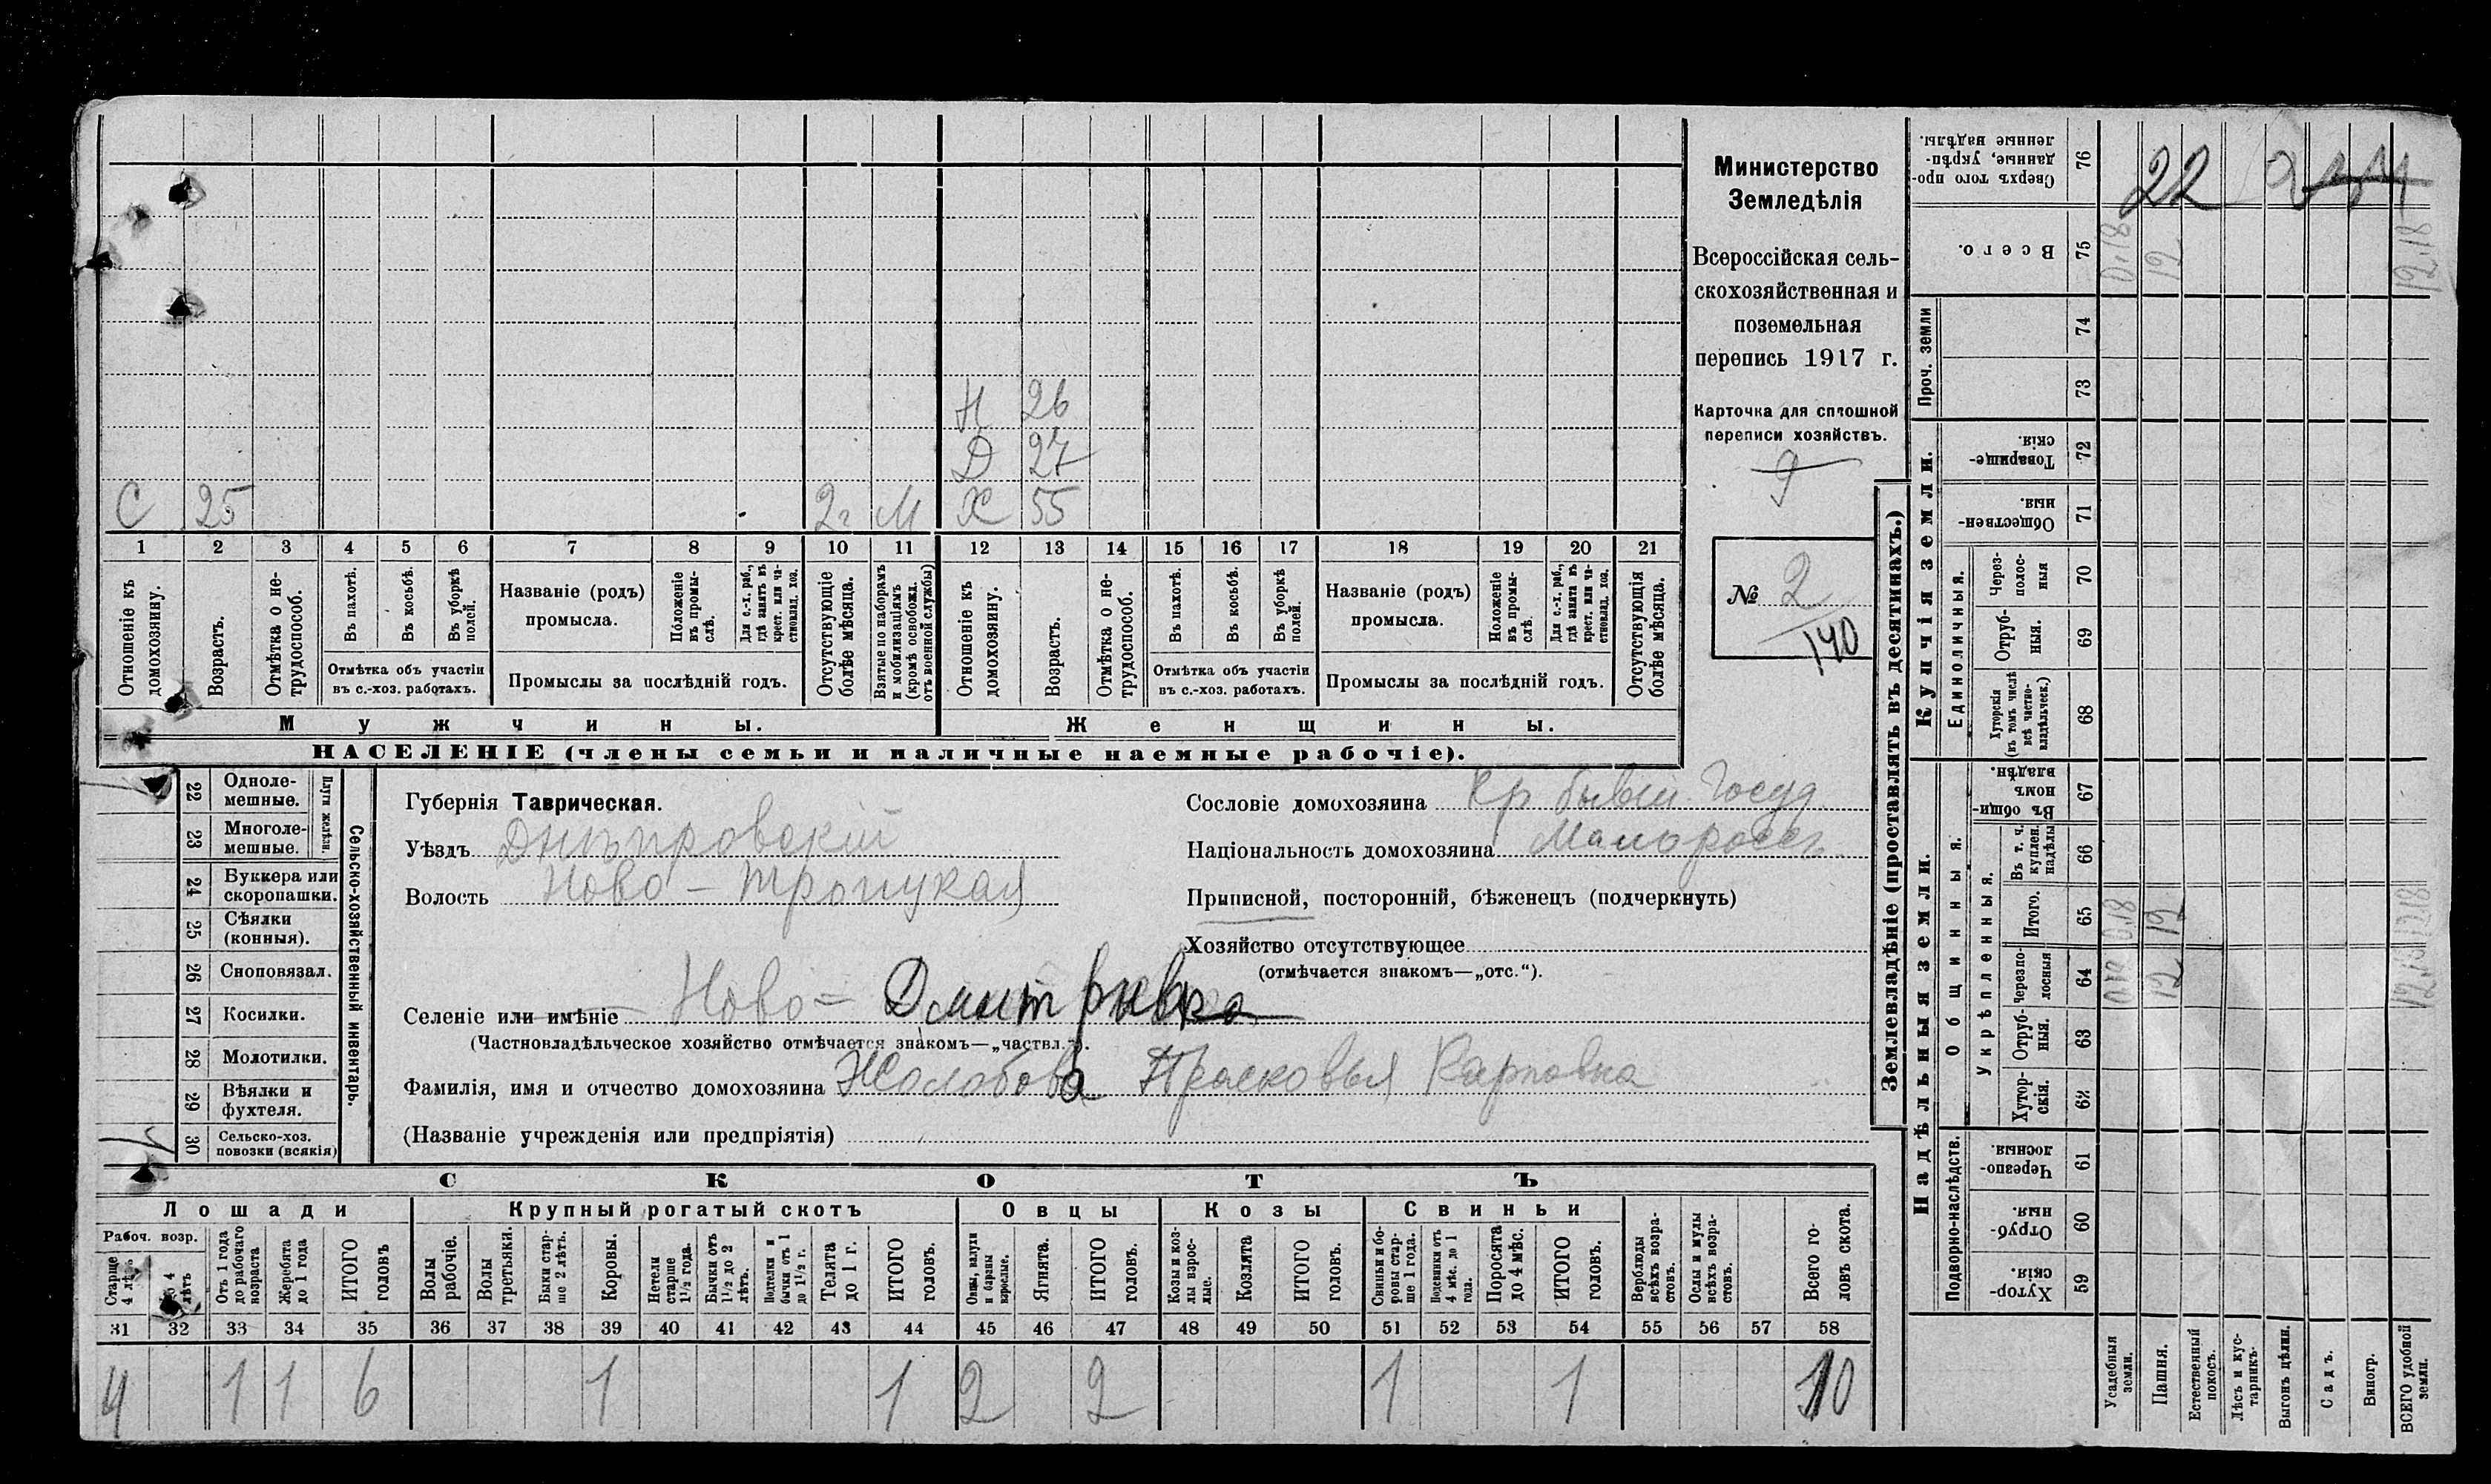 Министерство
Земледѣлія
Всероссійская сель-
скохозяйственная и
поземельная
перепись 1917 г.
Карточка для сплошной
переписи хозяйствъ.
9
№ 2
140
Н 26
D 27
С 25 2г М Х 55
1 2 3 4 5 6 7 8 9 10 11 12 13 14 15 16 17 18 19 20 21
Отношеніе къ домохозяину.
Возрастъ.
Отмѣтка о не-трудоспособ.
Въ пахотѣ.
Въ косьбѣ.
Въ уборкѣ полей.
Отмѣтка объ участіи
въ с.-хоз. работахъ.
Названіе (родъ)
промысла.
Положеніе въ промы-слѣ.
Для с.-х. раб., гдѣ занятъ въ крест. или ча-стновлад. хоз.
Промыслы за послѣдній годъ.
Отсутствующіе болѣе мѣсяца.
Взятые по наборамъ и мобилизаціямъ (кромѣ освобожд. отъ военной службы)
Отношеніе къ домохозяину.
Возрастъ.
Отмѣтка о не-трудоспособ.
Въ пахотѣ.
Въ косьбѣ.
Въ уборкѣ полей.
Отмѣтка объ участіи
въ с.-хоз. работахъ.
Названіе (родъ)
промысла.
Положеніе въ промы-слѣ.
Для с.-х. раб., гдѣ занята въ крест. или ча-стновлад. хоз.
Промыслы за послѣдній годъ.
Отсутствующія болѣе мѣсяца.
Мужчины.
Женщины.
НАСЕЛЕНІЕ (члены семьи и наличные наемные рабочіе).
22 Одноле-мешные.
23 Многоле-мешные.
Плуги желѣзн.
24 Буккера или скоропашки.
25 Сѣялки (конныя).
26 Сноповязал.
27 Косилки.
28 Молотилки.
29 Вѣялки и фухтеля.
30 Сельско-хоз. повозки (всякія) 1
Сельско-хозяйственный инвентарь.
Губернія Таврическая.
Уѣздъ Днѣпровскій
Волость Ново-Троицкая
Селеніе или имѣніе Ново-Дмитріевка
(Частновладѣльческое хозяйство отмѣчается знакомъ—„частвл.“).
Фамилія, имя и отчество домохозяина Жолобова Прасковья Карповна
(Названіе учрежденія или предпріятія)
Сословіе домохозяина Кр бывш. Госуд.
Національность домохозяина Малоросс.
Приписной, посторонній, бѣженецъ (подчеркнуть)
Хозяйство отсутствующее
(отмѣчается знакомъ—„отс.“).
СКОТЪ
Лошади
Крупный рогатый скотъ
Овцы
Козы
Свиньи
Рабоч. возр.
Старше 4 лѣтъ
До 4 лѣтъ
Отъ 1 года до рабочаго возраста
Жеребята до 1 года
ИТОГО головъ
Волы рабочіе.
Волы третьяки.
Быки стар-ше 2 лѣтъ.
Коровы.
Нетели старше 1½ года.
Бычки отъ 1½ до 2 лѣтъ.
Подтелки и бычки отъ 1 до 1½ г.
Телята до 1 г.
ИТОГО головъ.
Овцы, валухи и бараны взрослые.
Ягнята.
ИТОГО головъ.
Козы и коз-лы взрос-лые.
Козлята
ИТОГО головъ.
Свиньи и бо-ровы стар-ше 1 года.
Подсвинки отъ 4 мѣс. до 1 года.
Поросята до 4 мѣс.
ИТОГО головъ.
Верблюды всѣхъ возра-стовъ.
Ослы и мулы всѣхъ возра-стовъ.
Всего го-ловъ скота.
31 32 33 34 35 36 37 38 39 40 41 42 43 44 45 46 47 48 49 50 51 52 53 54 55 56 57 58
4 1 1 6 1 1 2 2 1 1 10
Землевладѣніе (проставлять въ десятинахъ.)
Купчія земли.
Надѣльныя земли.
Сверхъ того про-данные, укрѣп-ленные надѣлы. 76 22
Всего. 75 0,18 12 12,18
Проч. земли
74
73
Товарище-скія. 72
Обществен-ныя. 71
Единоличныя.
Через-полос-ныя 70
Отруб-ныя. 69
Хуторскія (въ томъ числѣ всѣ частно-владѣльческ.) 68
Общинныя.
Въ общи-номъ владѣн. 67
Укрѣпленныя.
Въ т. ч. куплен. надѣлы 66
Итого. 65 0,18 12 12,18
Черезпо-лосныя 64 12
Отруб-ныя. 63
Хутор-скія. 62
Подворно-наслѣдств.
Черезпо-лосныя 61
Отруб-ныя. 60
Хутор-скія. 59
Усадебныя земли.
Пашня.
Естественный покосъ.
Лѣсъ и кус-тарникъ.
Выгонъ цѣлин.
Садъ.
Виногр.
ВСЕГО удобной земли.